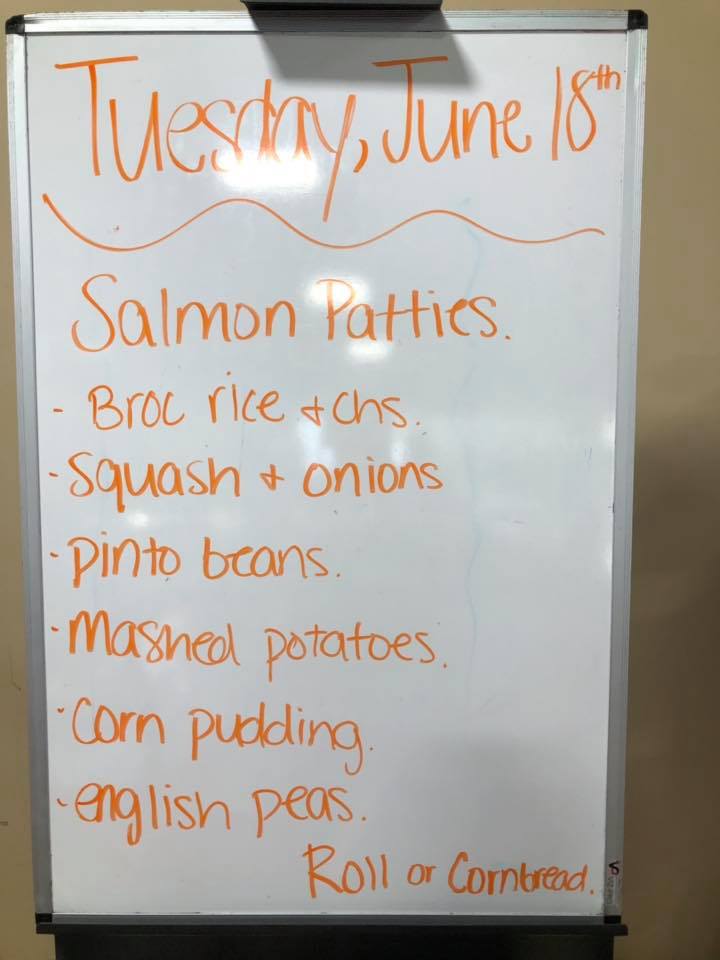 Tuesday, June 18th
Salmon Patties.
- Broc rice & chs.
- Squash & onions
- pinto beans.
- mashed potatoes.
- Corn pudding.
- english peas.
Roll or Cornbread.